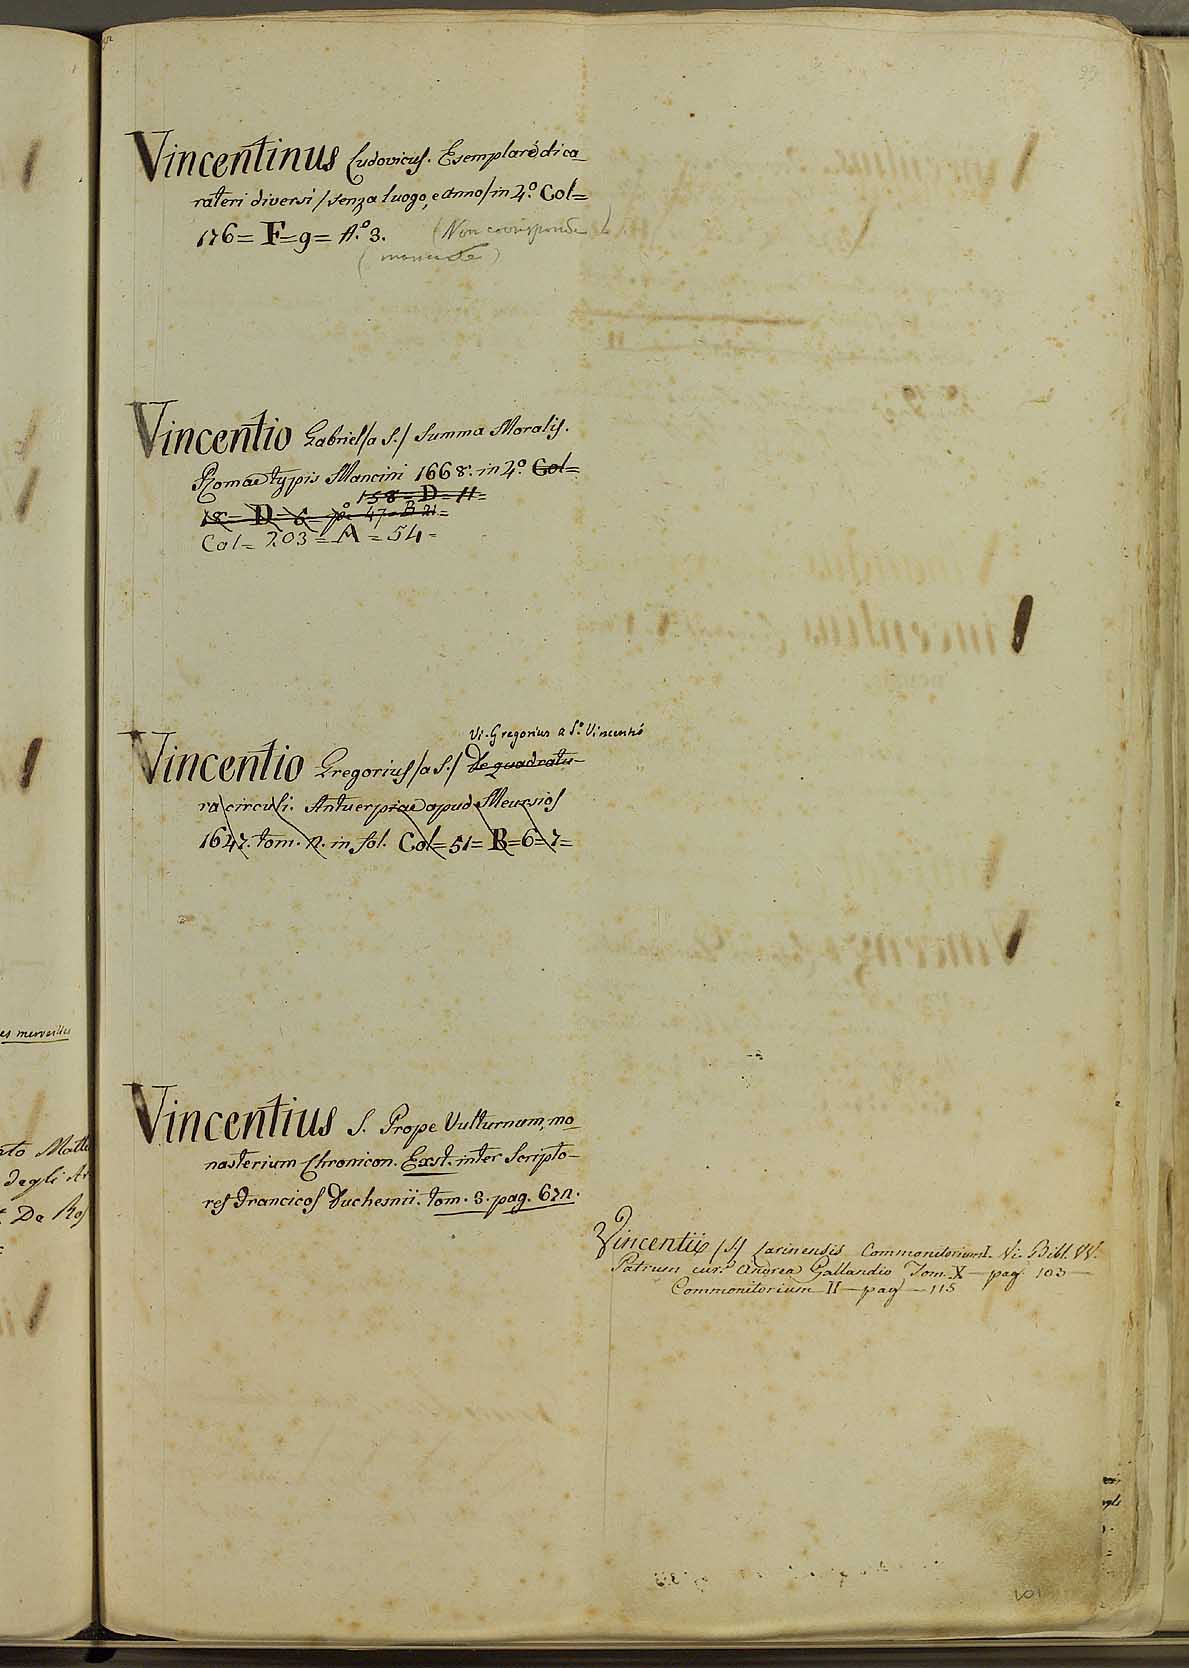 99
Vincentinus Ludovicus. Esemplare di ca
rateri diversi / senza luogo, e anno / in 4.º Col=
176= F= 9= A.º 3. (Non corrisponde)
(manca)
Vincentio Gabriel /a S./ Summa Moralis.
Romae typis Mancini 1668. in 4.º Col=
158= D= 11=
18= D= 6= 47= B 21=
Col= 203= A= 54=
Vi. Gregorius a S.º Vincentio
Vincentio Gregorius /a S./ De quadratu-
ra circuli. Antuerpiae apud Meursios
1647. tom. 2. in fol. Col= 51= B= 6= 7=
Vincentius S. Prope Vulturnum, mo
nasterium Chronicon. Exst. inter Scripto-
res Francicos Duchesnii. tom. 3. pag. 672.
Vincentii /S/ Larinensis Commonitorium I. Vi. Bibl. VV.
Patrum cur.ª Andrea Gallandio Tom. X — pag 103 —
Commonitorium II — pag — 115
101
es merveilles
ato Matte
degli Ar
De Ros